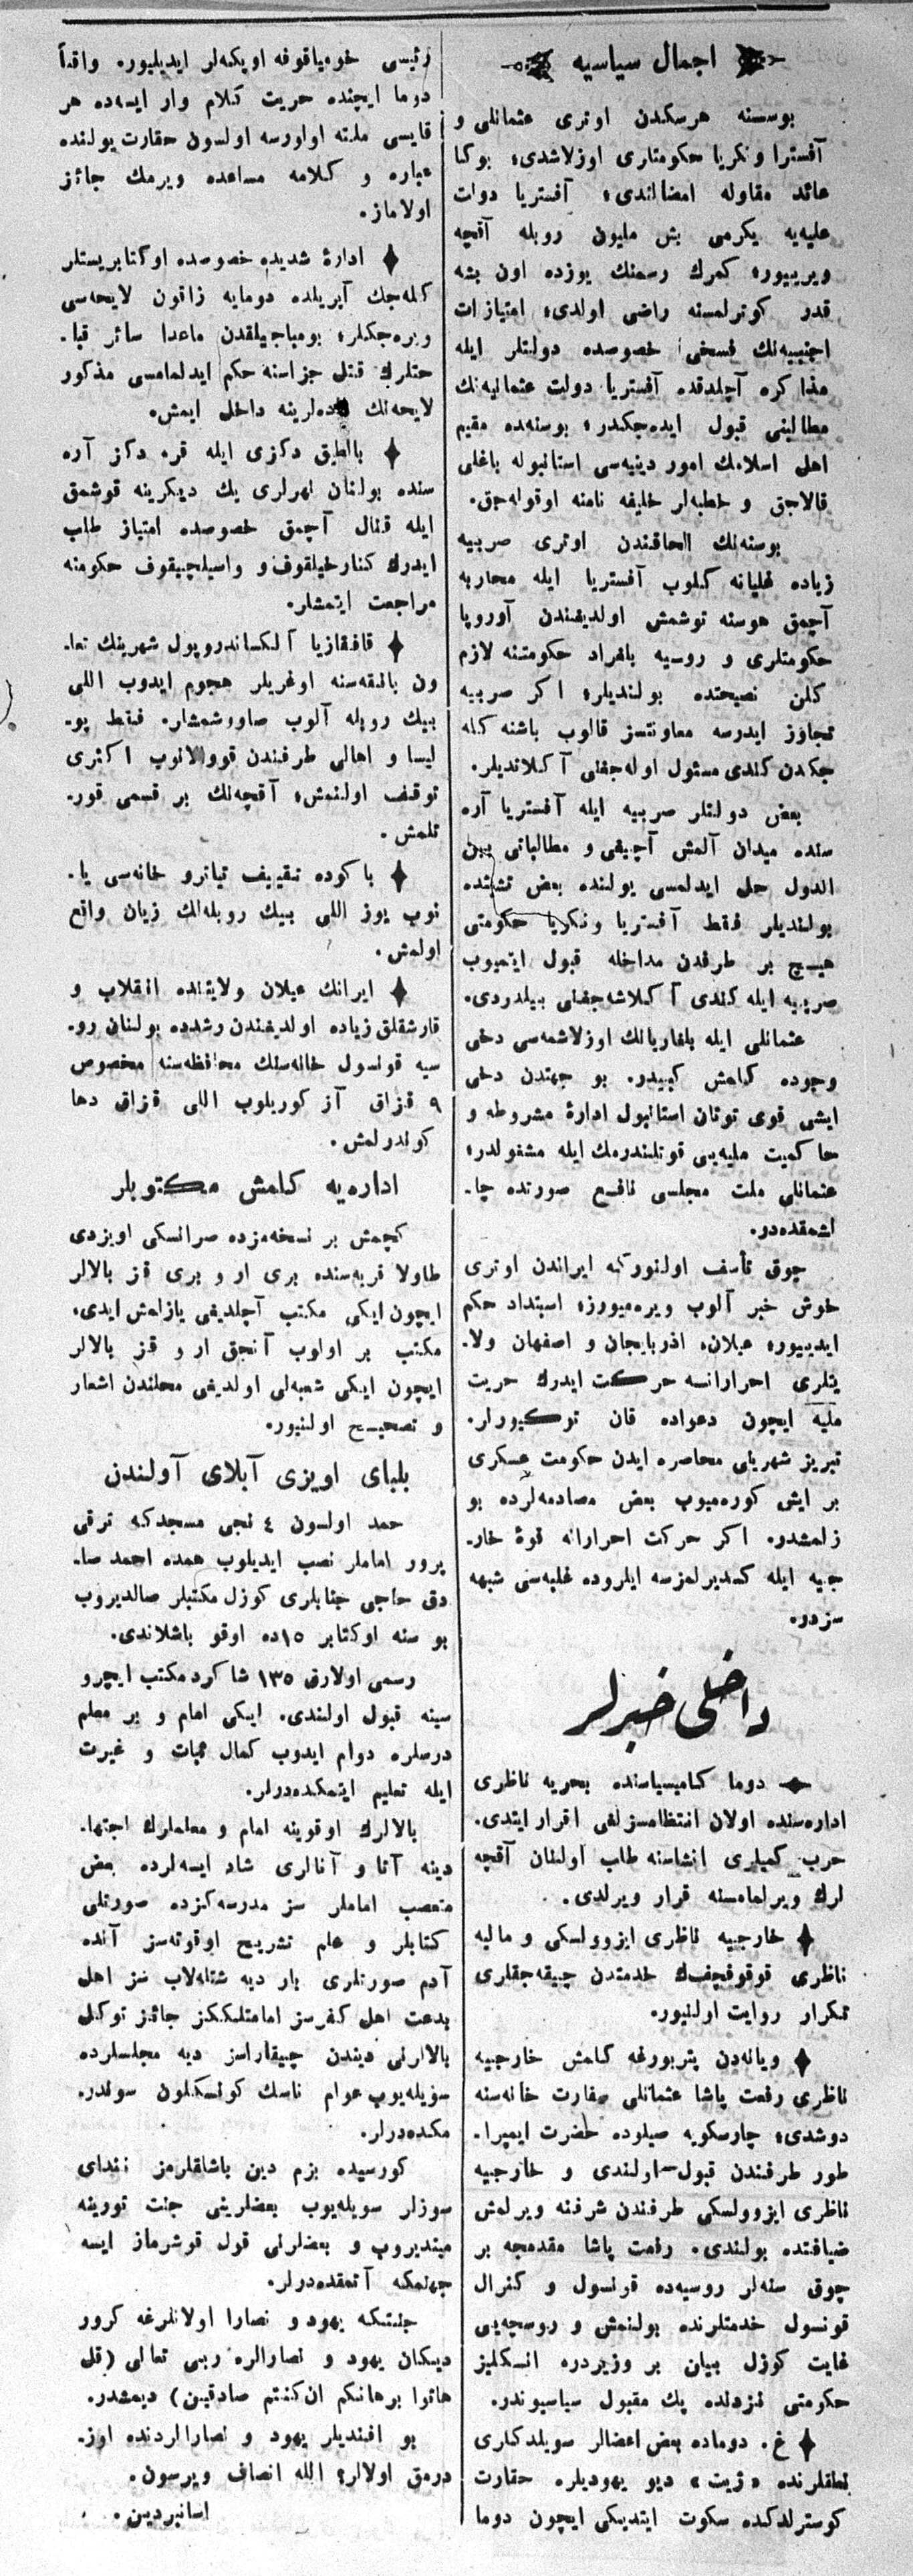 اجمال سیاسیه
بوسنه هرسكدن اوتری عثمانلی و
آفسترا ونكریا حكومتاری اوزلاشدی؛ بوكا
عائد مقاوله امضالندی؛ آفستریا دولت
علیه‌یه یكرمی بش ملیون روبله آقچه
ویرییور؛ كمرك رسمنك یوزده اون بشه
قدر كوترلمسنه راضی اولدی؛ امتیازات
اجنبیه‌نك فسخی خصوصده دولتلر ایله
مذاكره آچلدقده آفستریا دولت عثمالیه‌نك
مطالبنی قبول ایده‌جكدر؛ بوسنه‌ده مقیم
اهل اسلامك امور دینیه‌سی استانبوله باغلی
قالاجق و خطبه‌لر خلیفه نامنه اوقوله‌جق.
بوسنه‌نك الحاقندن اوتری صربیه
زیاده غلیانه كلوب آفستریا ایله محاربه
آچمق هوسنه توشمش اولدیغندن آوروپا
حكومتلری و روسیه بافراد حكومتنه لازم
كلن نصیحتده بولندیلر؛ اكر صربیه
تجاوز ایدرسه معاونتسز قالوب باشنه كله
جكدن كندی مسئول اوله‌جغنی آكلاتدیلر.
بعض دولتلر صربیه ایله آفستریا آره
سنده میدان آلمش آچیقی و مطالباتی بین
الدول حل ایدلمسی یولنده بعض تشبثده
بولندیلر فقط آفستریا ونكریا حكومتی
هیچ بر طرفدن مداخله قبول ایتمیوب
صربیه ایله كندی آكلاشه‌جغنی بیلدردی.
عثمانلی ایله بلغاریانك اوزلاشمه‌سی دخی
وجوده كلمش كیبیدر. بو جهتدن دخی
ایشی قوی توتان استانبول ادارۀ مشروطه و
حاكمیت ملیه‌یی قوتلندرمك ایله مشغولدر؛
عثمانلی ملت مجلسی نافع صورتده چا-
لشمقده‌در.
چوق تأسف اولنوركه ایراندن اوتری
خوش خبر آلوب ویره‌میورز؛ استبداد حكم
ایدییور؛ عیلان، اذربایجان و اصفهان ولا-
یتلری احرارانه حركت ایدرك حریت
ملیه ایچون دعواده قان توكیورلر.
تبریز شهرینی محاصره ایدن حكومت عسكری
بر ایش كوره‌میوب بعض مصادمه‌لرده بو
زلمشدر. اكر حركت احرارانه قوۀ خار-
جیه ایله كسدیرلمزسه ایلروده غلبه‌سی شبهه
سزدر.
داخلی خبرلر
دوما كامیسیاسنده بحریه ناظری
اداره‌سنده اولان انتظامسزلغی اقرار ایتدی.
حرب كمیلری انشاسنه طلب اولنان آقچه
لرك ویرلمامسنه قرار ویرلدی.
خارجیه ناظری ایزوولسكی و مالیه
ناظری قوقوفچفك خدمتدن چیقه‌جقلری
تكرار روایت اولنیور.
ویانه‌دن پتربورغه كلمش خارجیه
ناظری رفعت پاشا عثمانلی سفارت خانه‌سنه
دوشدی؛ چارسكویه صیلوده حضرت ایمپرا-
طور طرفندن قبول اولندی و خارجیه
ناظری ایزوولسكی طرفندن شرفنه ویرلمش
ضیافتده بولندی. رفعت پاشا مقدمجه بر
چوق سنه‌لر روسیه‌ده قونسول و كنرال
قونسول خدمتلرنده بولنمش و روسجه‌یی
غایت كوزل بیان بر وزیردره انكلیز
حكومتی نزدنده پك مقبول سیاسیوندر.
غ. دوماده بعض اعضالر سویلدكلری
نطقلرنده «ژیت» دیو یهودیلره حقارت
كوسترلدكده سكوت ایتدیكی ایچون دوما
رئیسی خومیاقوفه اوپكه‌لر ایدیلیور. واقعاً
دوما ایچنده حریت كلام وار ایسه‌ده هر
قایسی ملته اولورسه اولسون حقارت یولنده
عباره و كلامه مساعده ویرمك جائز
اولاماز.
ادارۀ شدیده خصوصده اوكتابریستلر
كله‌جك آپریلده دومایه زاقون لایحه‌سی
ویره‌جكلر؛ بومباجیلقدن ماعدا سائر قبا-
حتلرك قتل جزاسنه حكم ایدلمامسی مذكور
لایحه‌نك ماده‌لرینه داخل ایمش.
بالطیق دكزی ایله قره دكز آره
سنده بولنان نهرلری یك دیكرینه قوشمق
ایله قنال آچمق خصوصده امتیاز طلب
ایدرك كنارخیلقوف و واسیلچیقوف حكومته
مراجعت ایتمشلر.
قافقازیا آلكساندروپول شهرینك تعا-
ون بانقه‌سنه اوغریلر هجوم ایدوب اللی
بیك روبله آلوب صاوشمشلر. فقط پو-
لیسا و اهالی طرفندن قووالانوب اكثری
توقیف اولنمش؛ آقچه‌نك بر قسمی قور-
تلمش.
باكوده تقییف تیاترو خانه‌سی یا-
نوب یوز اللی بیك روبله‌لك زیان واقع
اولمش.
ایرانك عیلان ولایتنده انقلاب و
قارشقلق زیاده اولدیغندن رشدده بولنان رو-
سیه قونسول خانه‌سنك محافظه‌سنه مخصوص
٩ قزاق آز كوریلوب اللی قزاق دها
كوندرلمش.
اداره‌یه كلمش مكتوبلر
كچمش بر نسخه‌مزده صرانسكی اویزدی
طاولا قریه‌سنده بری ار و بری قز بالالر
ایچون ایكی مكتب آچلدیغی یازلمش ایدی.
مكتب بر اولوب آنجق ار و قز بالالر
ایچون ایكی شعبه‌لی اولدیغی محلندن اشعار
و تصحیح اولنیور.
بلبای اویزی آبلای آولندن
حمد اولسون ٤ نجی مسجدكه ترقی
پرور اماملر نصب ایدیلوب همده احمد صا-
دق حاجی جنابلری كوزل مكتبلر صالدیروب
بو سنه اوكتابر ١٥ده اوقو باشلاندی.
رسمی اولارق ١٣٥ شاكرد مكتب ایچرو
سینه قبول اولندی. ایكی امام و بر معلم
درسلره دوام ایدوب كمال همات و غیرت
ایله تعلیم ایتمكده‌درلر.
بالالرك اوقوینه امام و معلملرك اجتها-
دینه آتا و آنالری شاد ایسه‌لرده بعض
متعصب اماملر سز مدرسه‌كزده صورتلی
كتابلر و علم تشریح اوقوته‌سز آنده
آدم صورتلری بار دیه شتله‌لاب سز اهل
بدعت اهل كفرسز امامتلككز جائز توكل
بالالرنی دیندن چیقاراسز دیه مجلسلرده
سویله‌یوب عوام ناسك كونكلون سوندر-
مكده‌درلر.
كورسیده بزم دین باشاقلرمز نندای
سوزلر سویله‌یوب بعضلرینی جنت تورینه
میندیروب و بعضلرنی قول قوشرماز ایسه
جهنمكه آتمقده‌درلر.
جنتكه یهود و نصارا اولانلرغه كرور
دیمكان یهود و نصارالره ربی تعالی (قل
هاتوا برهانكم ان كنتم صادقین) دیمشدر.
بو افندیلر یهود و نصارالردنده اوز-
درمق اولالر؟ الله انصاف ویرسون.
اسانبردین.